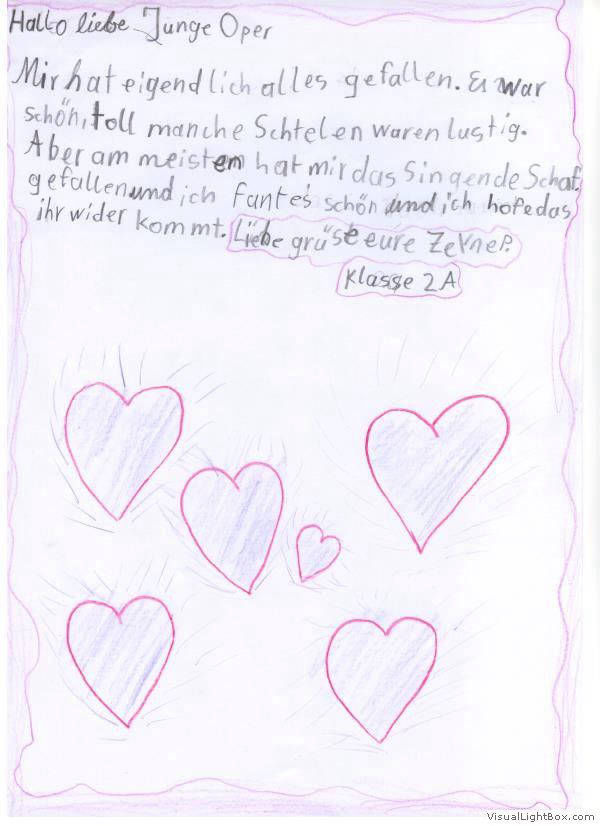 Hallo liebe Junge Oper
Mir hat eigendlich alles gefallen. Es war
schön, toll manche Schtelen waren lustig.
Aber am meisten hat mir das Singende Schaf.
gefallen und ich fante's schön und ich hofe das
ihr wider kommt. Liebe grüse eure Zeynep.
Klasse 2A
VisualLightBox.com